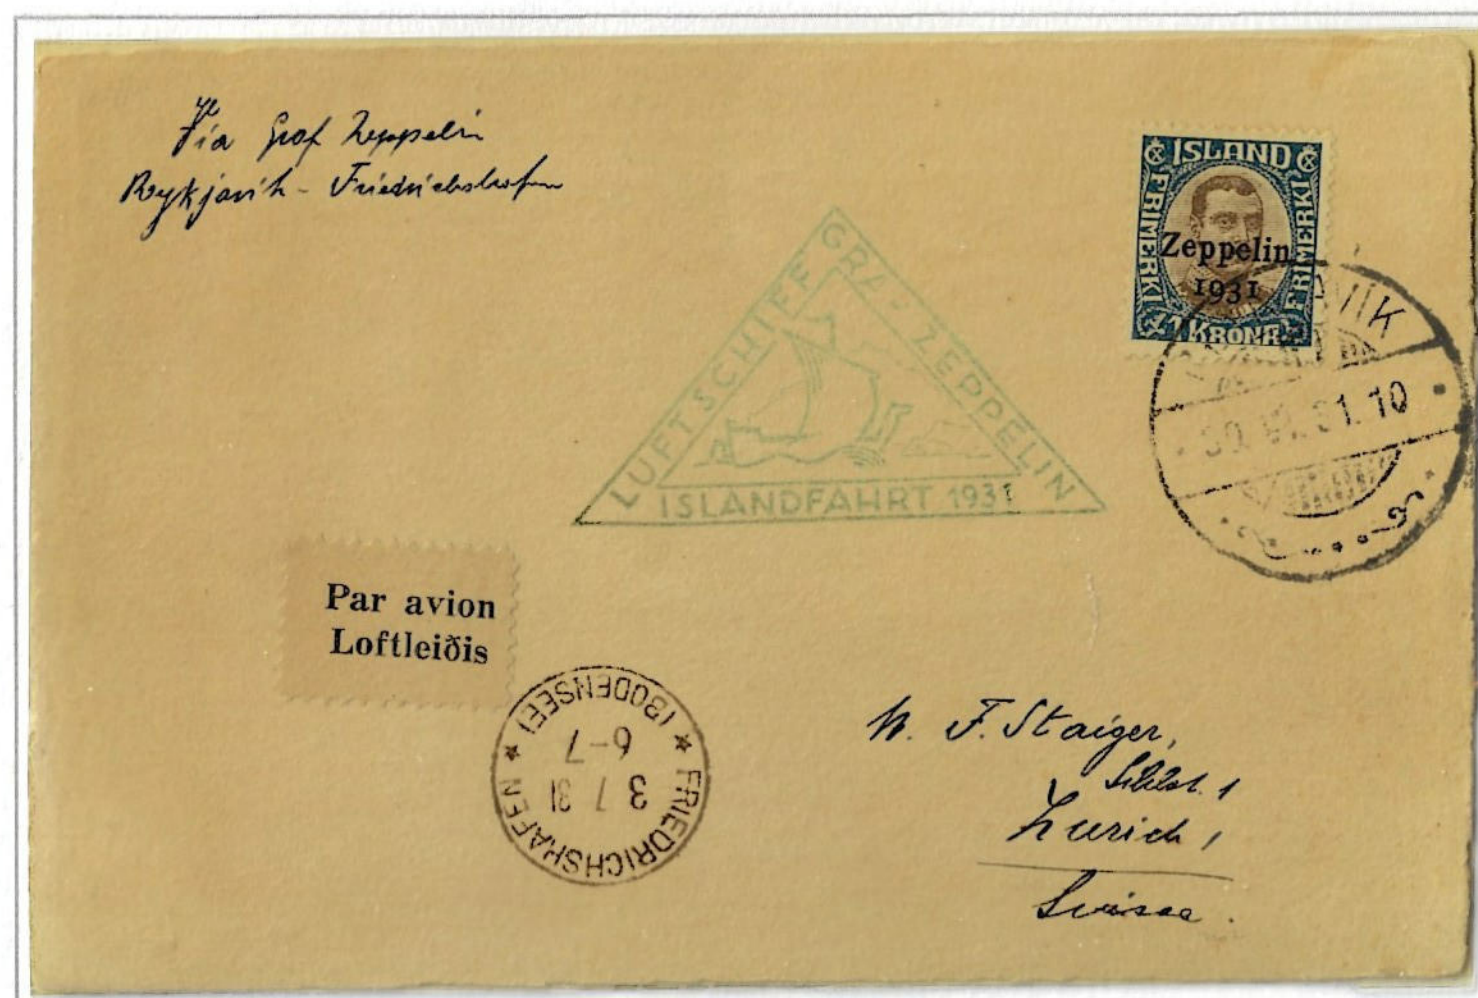 Via Graf Zeppelin
Reykjavik - Friedrichshafen
ISLAND
FRIMERKI
FRIMERKI
Zeppelin
1931
1 KRONA
30. VI. 31. 10
LUFTSCHIFF GRAF ZEPPELIN
ISLANDFAHRT 1931
Par avion
Loftleiðis
FRIEDRICHSHAFEN
(BODENSEE)
3 7 31
6-7
F. Staiger,
Zurich 1
Suisse.